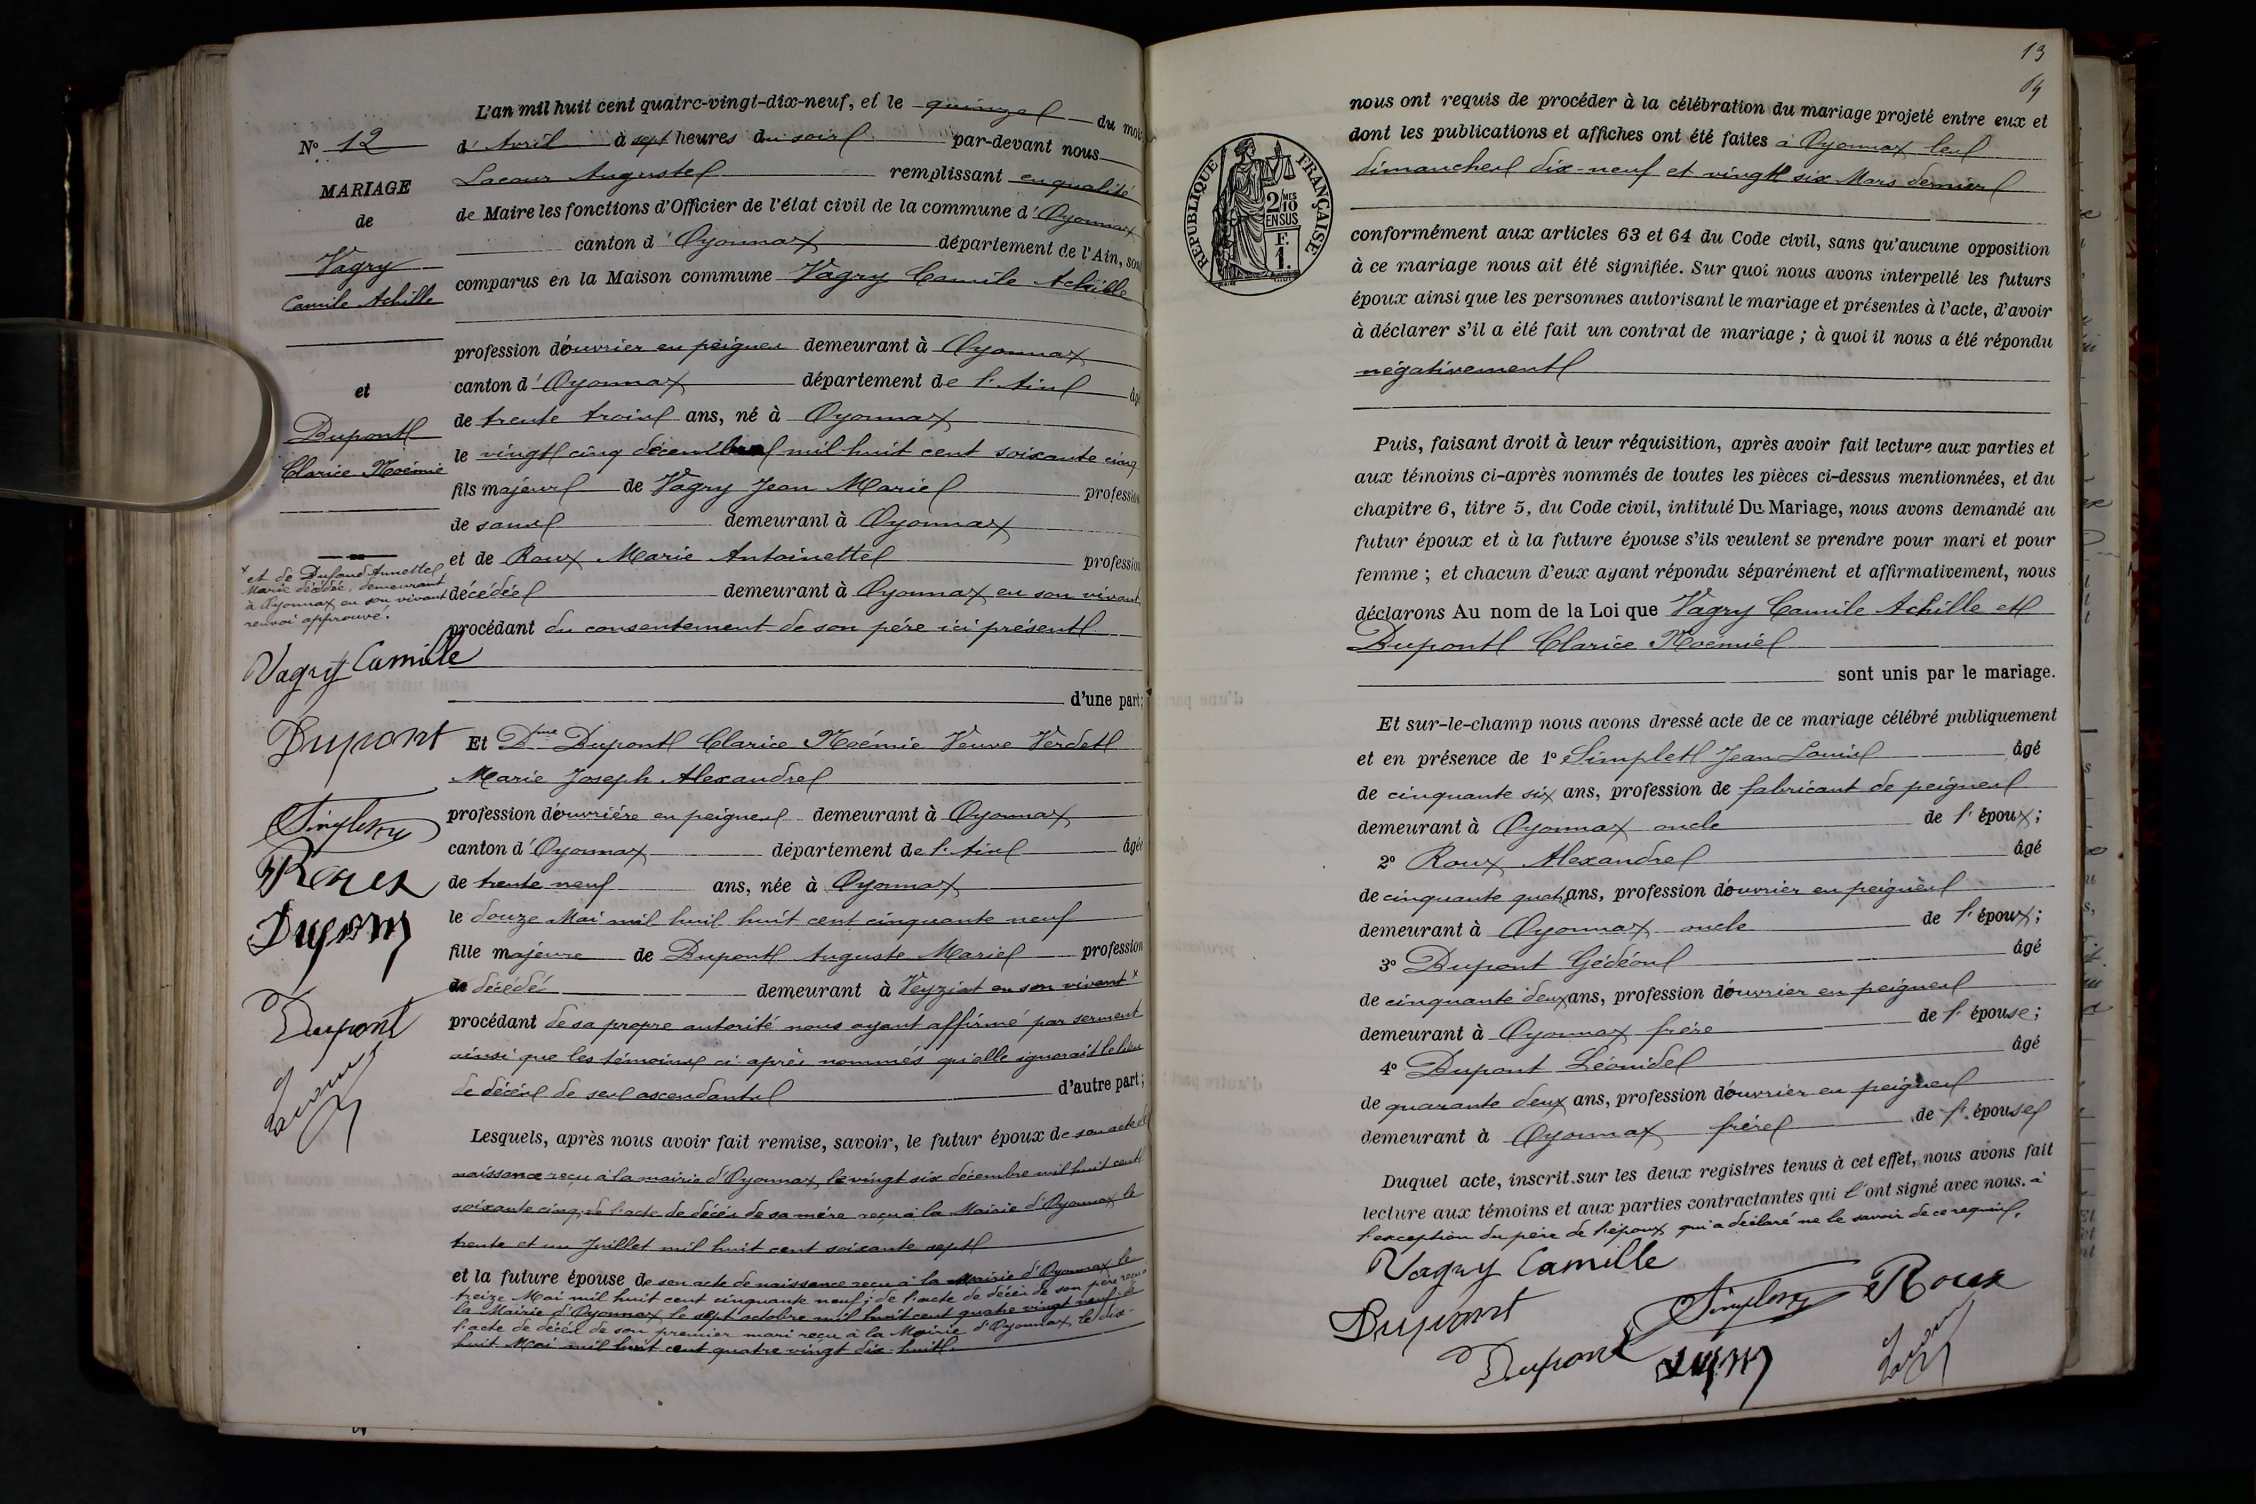 L'an mil huit cent quatre-vingt-dix-neuf, et le quinze du mois
d'Avril à sept heures du soir par-devant nous
Lacour Auguste remplissant en qualité
de Maire les fonctions d'Officier de l'état civil de la commune d'Oyonnax
canton d'Oyonnax département de l'Ain, sont
comparus en la Maison commune Vagry Camile Achille
profession d'ouvrier en peignes demeurant à Oyonnax
canton d'Oyonnax département de l'Ain âgé
de trente trois ans, né à Oyonnax
le vingt cinq décembre mil huit cent soixante cinq
fils majeur de Vagry Jean Marie profession
de sans demeurant à Oyonnax
et de Roux Marie Antoinette profession
décédée demeurant à Oyonnax en son vivant
procédant du consentement de son père ici présent
d'une part;
Et Dme Dupont Clarice Noémie Veuve Verdet
Marie Joseph Alexandre
profession d'ouvrière en peignes demeurant à Oyonnax
canton d'Oyonnax département de l'Ain âgée
de trente neuf ans, née à Oyonnax
le douze Mai mil huil huit cent cinquante neuf
fille majeure de Dupont Auguste Marie profession
de décédé demeurant à Veyziat en son vivant x
procédant de sa propre autorité nous ayant affirmé par serment
ainsi que les témoins ci après nommés qu'elle ignorait le lieu
de décés de ses ascendants d'autre part;
Lesquels, après nous avoir fait remise, savoir, le futur époux de son acte de
naissance reçu à la mairie d'Oyonnax le vingt six décembre mil huit cent
soixante cinq, de l'acte de décés de sa mére reçu à la Mairie d'Oyonnax le
trente et un Juillet mil huit cent soixante sept
et la future épouse de son acte de naissance reçu à la Mairie d'Oyonnax le
treize Mai mil huit cent cinquante neuf; de l'acte de décés de son pére reçu à
la Mairie d'Oyonnax le sept octobre mil huit cent quatre vingt neuf; de
l'acte de décés de son premier mari reçu à la Mairie d'Oyonnax le dix-
huit Mai mil huit cent quatre vingt dix-huit.
No 12
MARIAGE
de
Vagry
Camile Achille
et
Dupont
Clarice Noémie
x et de Dufour Annette
Marie décédée, demeurant
à Oyonnax en son vivant
renvoi approuvé.
Vagry Camille
Dupont
Roux
Dupont
Dupont
13
nous ont requis de procéder à la célébration du mariage projeté entre eux et
dont les publications et affiches ont été faites à Oyonnax les
dimanches dix-neuf et vingt six Mars dernier
RÉPUBLIQUE FRANÇAISE
2/10MES
EN SUS
F.
1.
conformément aux articles 63 et 64 du Code civil, sans qu'aucune opposition
à ce mariage nous ait été signifiée. Sur quoi nous avons interpellé les futurs
époux ainsi que les personnes autorisant le mariage et présentes à l'acte, d'avoir
à déclarer s'il a été fait un contrat de mariage; à quoi il nous a été répondu
négativement
Puis, faisant droit à leur réquisition, après avoir fait lecture aux parties et
aux témoins ci-après nommés de toutes les pièces ci-dessus mentionnées, et du
chapitre 6, titre 5, du Code civil, intitulé Du Mariage, nous avons demandé au
futur époux et à la future épouse s'ils veulent se prendre pour mari et pour
femme; et chacun d'eux ayant répondu séparément et affirmativement, nous
déclarons Au nom de la Loi que Vagry Camile Achille et
Dupont Clarice Noémie
sont unis par le mariage.
Et sur-le-champ nous avons dressé acte de ce mariage célébré publiquement
et en présence de 1° Simplet Jean Louis âgé
de cinquante six ans, profession de fabricant de peignes
demeurant à Oyonnax oncle de l'époux;
2° Roux Alexandre âgé
de cinquante quatre ans, profession d'ouvrier en peignes
demeurant à Oyonnax oncle de l'époux;
3° Dupont Gédéon âgé
de cinquante deux ans, profession d'ouvrier en peignes
demeurant à Oyonnax frère de l'épouse;
4° Dupont Léonide âgé
de quarante deux ans, profession d'ouvrier en peignes
demeurant à Oyonnax frère de l'épouse
Duquel acte, inscrit sur les deux registres tenus à cet effet, nous avons fait
lecture aux témoins et aux parties contractantes qui l'ont signé avec nous. à
l'exception du père de l'époux qui a déclaré ne le savoir de ce requis.
Vagry Camille
Roux
Dupont
Dupont